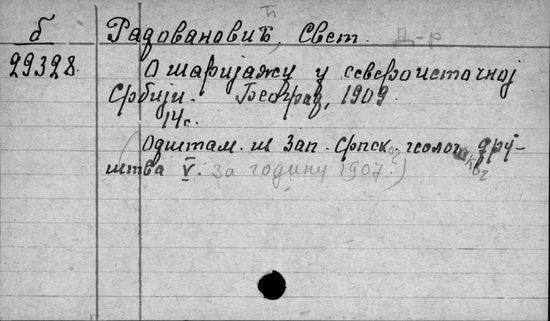 ћ
б Радовановић, Свет. Д-р
29328. О шаријажу у североисточној
Србији. Београд, 1909.
14с.
(Одштам. из Зап. Српског геолог. дру-
штва V. за годину 1907.)